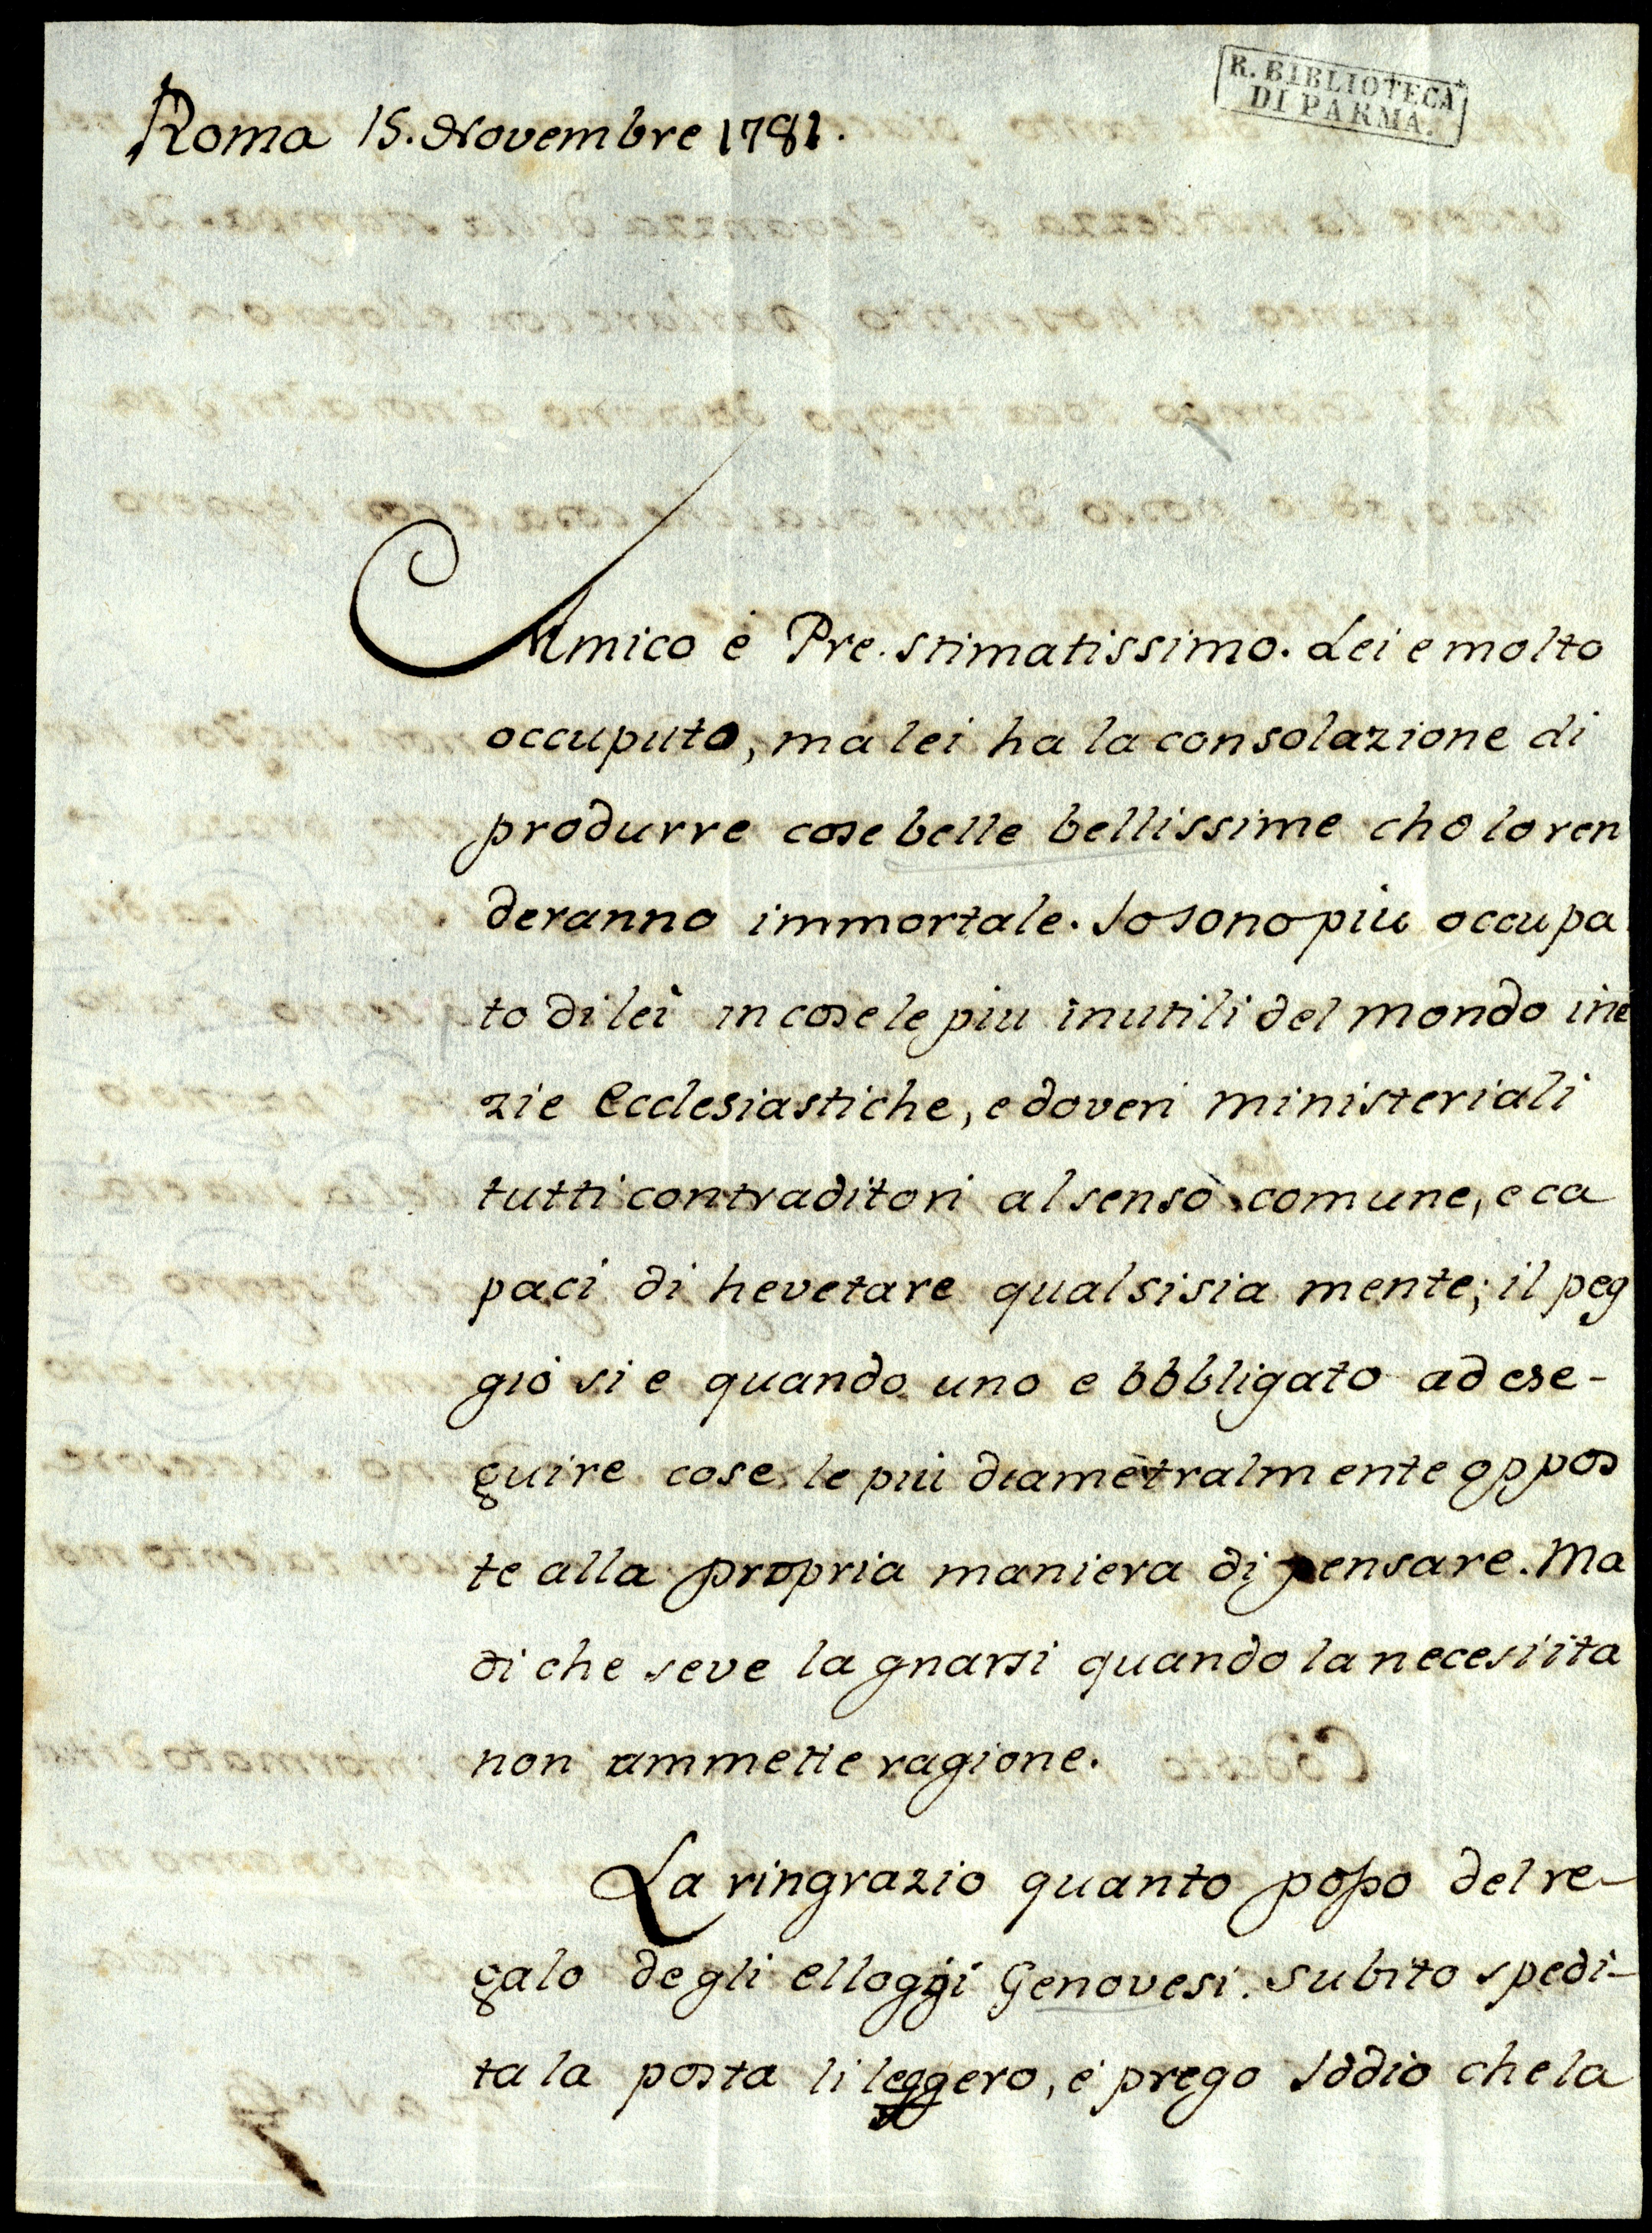 R. BIBLIOTECA
DI PARMA.
Roma 15. Novembre 1781.
Amico e Pre. stimatissimo. Lei e molto
occuputo, ma lei ha la consolazione di
produrre cose belle bellissime cho lo ren
deranno immortale. Io sono piu occupa
to di lei in cose le piu inutili del mondo ine
zie Ecclesiastiche, e doveri ministeriali
tutti contraditori al senso comune, e ca
paci di hevetare qualsisia mente; il peg
gio si e quando uno e bbbligato ad ese-
guire cose le piu diametralmente oppos
te alla propria maniera di pensare. Ma
di che seve lagnarsi quando la necesiita
non ammette ragione.
La ringrazio quanto posso del re-
galo degli elloggi Genovesi. subito spedi-
ta la posta li leggero, e prego Iddio che la